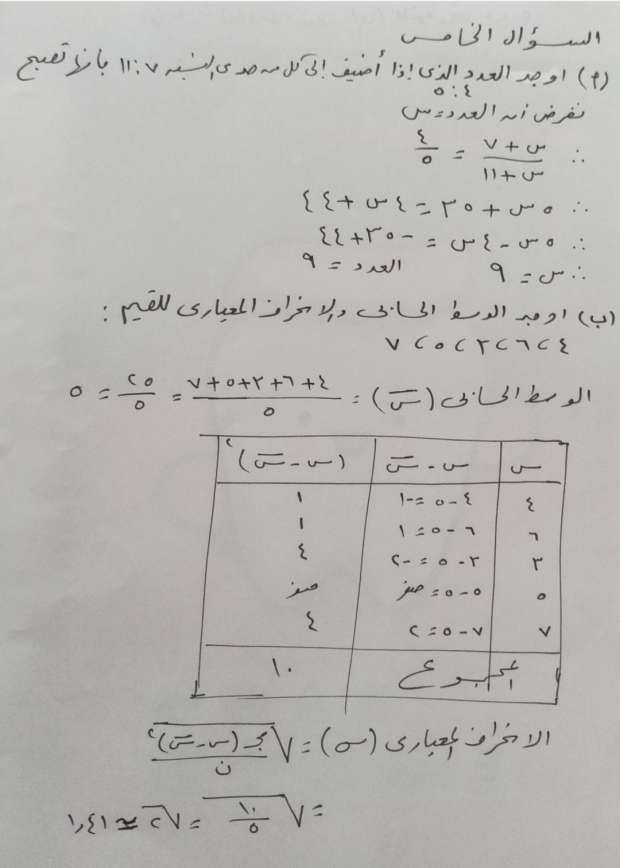 السؤال الخامس
(أ) اوجد العدد الذى إذا أضيف إلى كل من حدى النسبه ٧:١١ بانها تصبح
٤:٥
نفرض أن العدد = س
∴ (س+٧)/(س+١١) = ٤/٥
∴ ٥س+٣٥=٤س+٤٤
∴ ٥س-٤س = -٣٥+٤٤
∴ س=٩ العدد = ٩
(ب) اوجد الوسط الحسابى والانحراف المعيارى للقيم :
٤، ٦، ٣، ٥، ٧
الوسط الحسابى (س̅) = (٤+٦+٣+٥+٧)/٥ = ٢٥/٥ = ٥
س س-س̅ (س-س̅)²
٤ ٤-٥=-١ ١
٦ ٦-٥=١ ١
٣ ٣-٥=-٢ ٤
٥ ٥-٥=صفر صفر
٧ ٧-٥=٢ ٤
المجموع ١٠
الانحراف المعيارى (σ) = √(مجـ(س-س̅)²/ن)
= √(١٠/٥) = √٢ ≃ ١,٤١